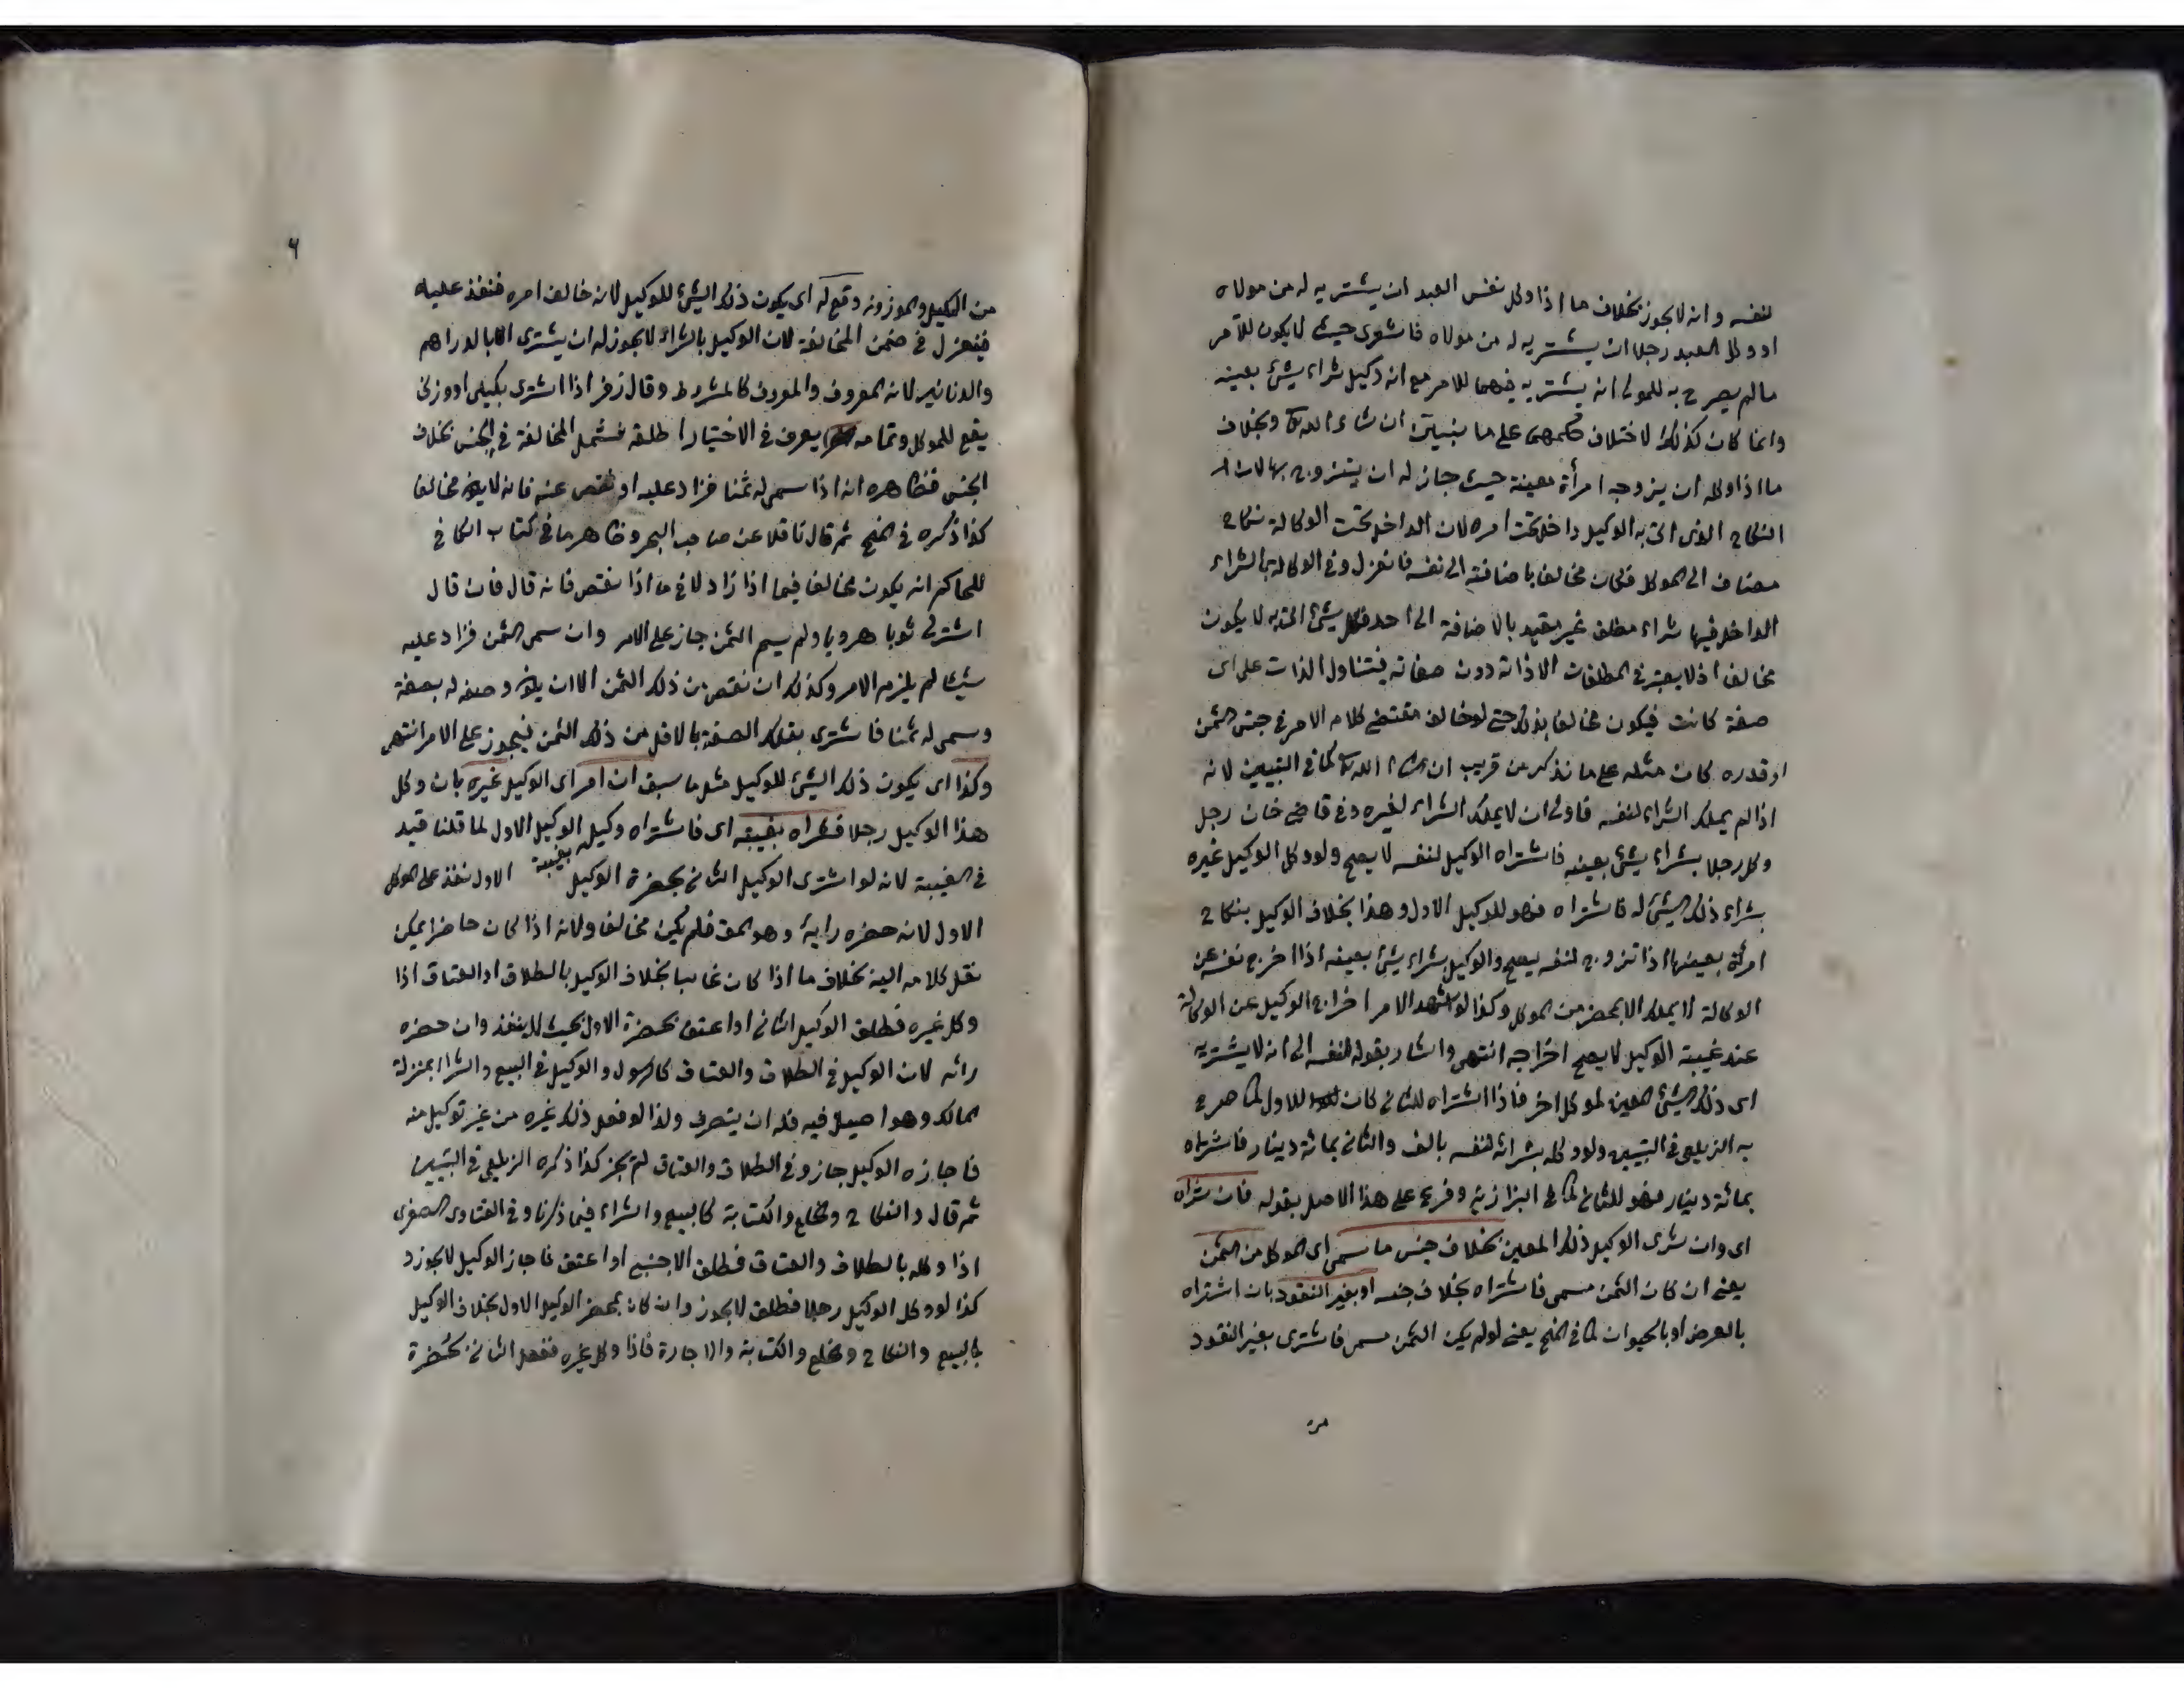 لنفسه وانه لا يجوز بخلاف ما اذا وكل نفس العبد ان يشتريه له من مولاه
او وكل العبد رجلا ان يشتريه له من مولاه فاشترى حيث لا يكون للآمر
ما لم يصرح به للمولى انه يشتريه فيهما للامر مع انه وكيل شراء شئ بعينه
وانما كان كذلك لاختلاف حكمهن على ما نبينه ان شاء الله تع وبخلاف
ما اذا وكله ان يزوجه امرأة معينة حيث جاز له ان يتزوج بها لان
النكاح الذى اتى به الوكيل داخل تحت امره لان الداخل تحت الوكالة نكاح
مضاف الى الموكل فكان مخالفا باضافته الى نفسه فانعزل وفى الوكالة بالشراء
الداخل فيها شراء مطلق غير مقيد بالاضافة الى احد فكل شئ اتى به لا يكون
مخالفا اذ لا يعتبر فى المطلقات الا ذاته دون صفاته فيتناول الذات على اى
صفة كانت فيكون مخالفا بذلك حتى لو خالف مقتضى كلام الامر فى جنس الثمن
او قدره كان مثله على ما نذكر من قريب ان شاء الله تع كما فى التبيين لانه
اذا لم يملك الشراء لنفسه فاولى ان لا يملك الشراء لغيره وفى قاضى خان رجل
وكل رجلا بشراء شئ بعينه فاشتراه الوكيل لنفسه لا يصح ولو وكل الوكيل غيره
بشراء ذلك الشئ له فاشتراه فهو للوكيل الاول وهذا بخلاف الوكيل بنكاح
امرأة بعينها اذا تزوج لنفسه يصح والوكيل بشراء شئ بعينه اذا اخرج نفسه عن
الوكالة لا يملك الا بمحضر من الموكل وكذا لو اشهد الامر اخراج الوكيل عن الوكالة
عند غيبة الوكيل لا يصح اخراجه انتهى واشار بقوله لنفسه الى انه لا يشتريه
اى ذلك الشئ المعين لموكل اخر فاذا اشتراه للثانى كان للاول كما صرح
به الزيلعى فى التبيين ولو وكله بشرائه لنفسه بالف والثانى بمائة دينار فاشتراه
بمائة دينار فهو للثانى كما فى البزازية وفرع على هذا الاصل بقوله فان شراه
اى وان شرى الوكيل ذلك المعين بخلاف جنس ما سمى اى الموكل من الثمن
يعنى ان كان الثمن مسمى فاشتراه بخلاف جنسه او بغير النقود بان اشتراه
بالعرض او بالحيوان كما فى المنح يعنى لو لم يكن الثمن مسمى فاشترى بغير النقود
من
٦
من المكيل والموزونه وقع له اى يكون ذلك الشئ للوكيل لانه خالف امره فنفذ عليه
فينعزل فى ضمن المخالفة لان الوكيل بالشراء لا يجوز له ان يشترى الا بالدراهم
والدنانير لانه المعروف والمعروف كالمشروط وقال زفر اذا اشترى بكيلى او وزنى
يقع للموكل وتمامه يعرف فى الاختيار اطلقه فشمل المخالفة فى الجنس بخلاف
الجنس فظاهره انه اذا سمى له ثمنا فزاد عليه او نقص عنه فانه لا يكون مخالفا
كذا ذكره فى المنح ثم قال ناقلا عن صاحب البحر وظاهر ما فى كتاب الكافى
للحاكم انه يكون مخالفا فيما اذا زاد لا فى ما اذا نقص فانه قال فان قال
اشتر لى ثوبا هرويا ولم يسم الثمن جاز على الامر وان سمى الثمن فزاد عليه
شيئا لم يلزم الامر وكذلك ان نقص من ذلك الثمن الا ان يكون وصفه له بصفة
وسمى له ثمنا فاشترى بتلك الصفة بالاقل من ذلك الثمن فيجوز على الامر انتهى
وكذا اى يكون ذلك الشئ للوكيل مثل ما سبق ان امر اى الوكيل غيره بان وكل
هذا الوكيل رجلا فشراه بغيبته اى فاشتراه وكيل الوكيل الاول لما قلنا قيد
بغيبة
فى الغيبة لانه لو اشترى الوكيل الثانى بحضرة الوكيل الاول نفذ على الموكل
الاول لانه حضره رايه وهو المق فلم يكن مخالفا ولانه اذا كان حاضرا يمكن
نقل كلامه اليه بخلاف ما اذا كان غائبا بخلاف الوكيل بالطلاق او العتاق اذا
وكل غيره فطلق الوكيل الثانى او اعتق بحضرة الاول بحيث لا ينفذ وان حضره
رائه لان الوكيل فى الطلاق والعتاق كالرسول والوكيل فى البيع والشراء بمنزلة
المالك وهو اصيل فيه فله ان يتصرف ولذا لو فعل ذلك غيره من غير توكيل منه
فاجازه الوكيل جاز وفى الطلاق والعتاق لم يجز كذا ذكره الزيلعى فى التبيين
ثم قال والنكاح والخلع والكتابة كالبيع والشراء فيما ذكرنا وفى الفتاوى الصغرى
اذا وكله بالطلاق والعتاق فطلق الاجنبى او اعتق فاجاز الوكيل لا يجوز و
كذا لو وكل الوكيل رجلا فطلق لا يجوز وان كان بمحضر الوكيل الاول بخلاف الوكيل
بالبيع والنكاح والخلع والكتابة والاجارة فاذا وكل غيره ففعل الثانى بحضرة